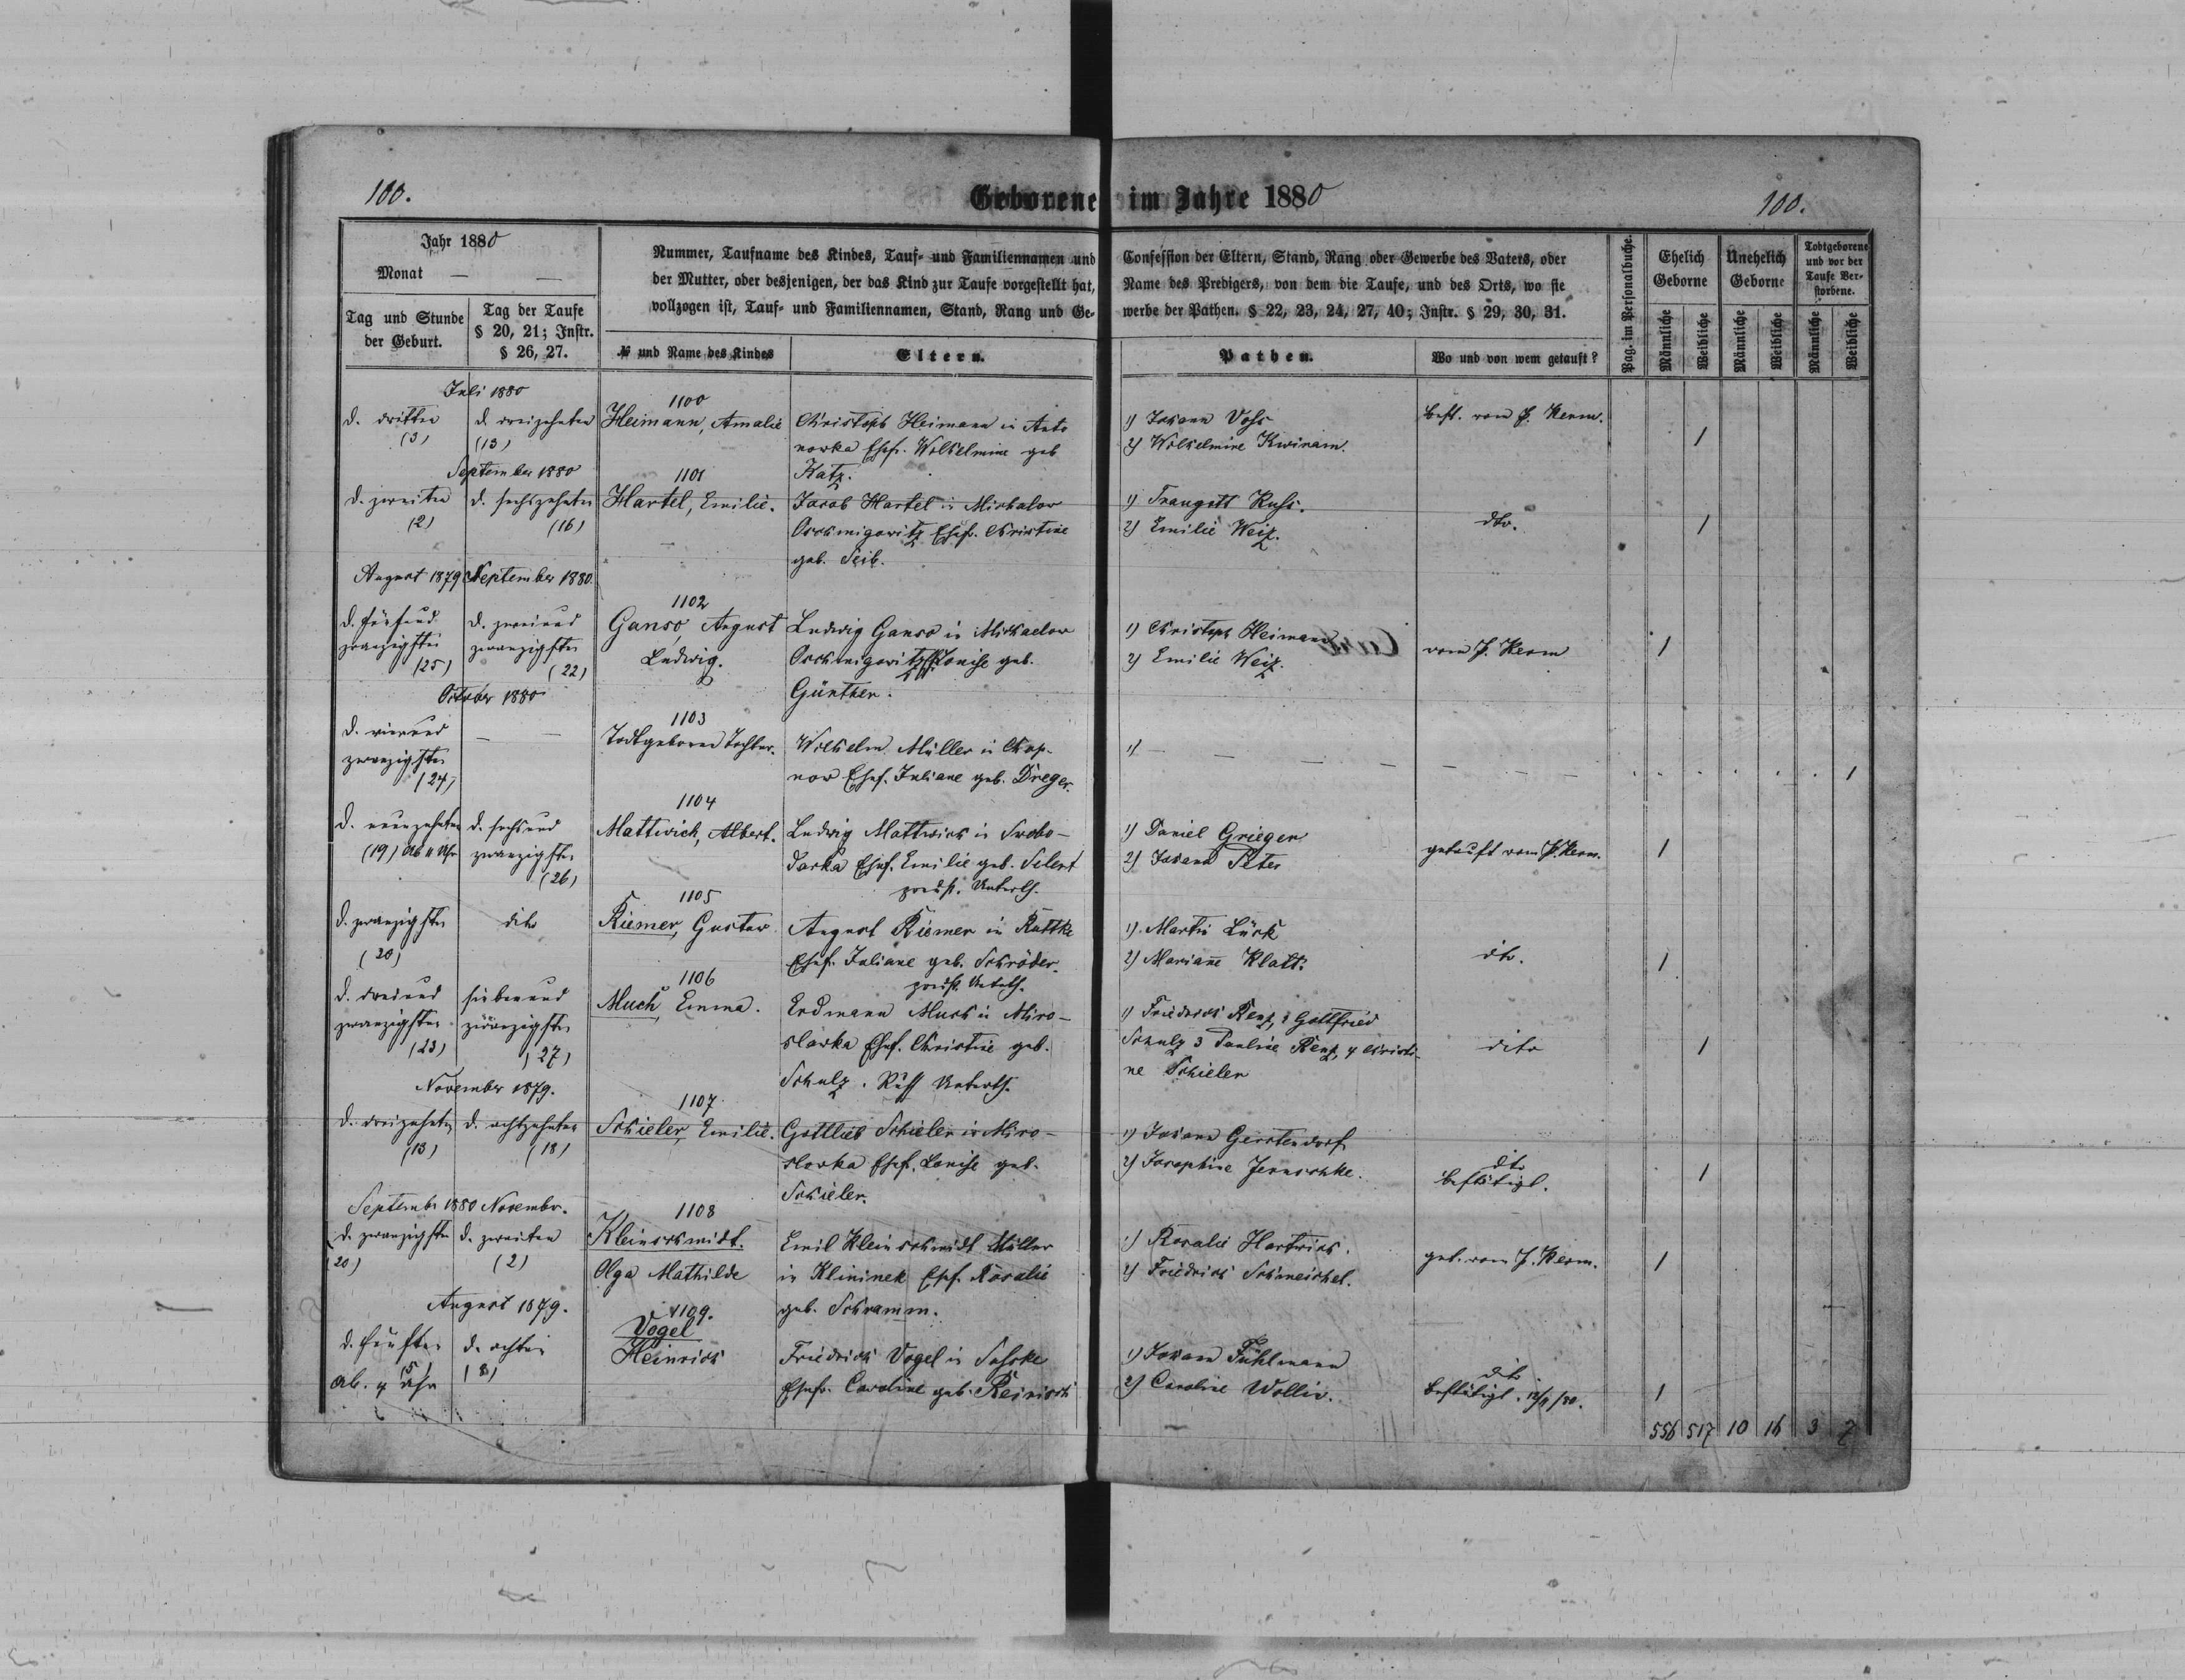 100.
Geborene im Jahre 1880
100.
Jahr 1880
Monat — —
Tag und Stunde der Geburt.
Tag der Taufe § 20, 21; Instr. § 26, 27.
Nummer, Taufname des Kindes, Tauf- und Familiennamen und
der Mutter, oder desjenigen, der das Kind zur Taufe vorgestellt hat,
vollzogen ist, Tauf- und Familiennamen, Stand, Rang und Ge-
№ und Name des Kindes
Eltern.
Confession der Eltern, Stand, Rang oder Gewerbe des Vaters, oder
Name des Predigers, von dem die Taufe, und des Orts, wo sie
werbe der Pathen. § 22, 23, 24, 27, 40; Instr. § 29, 30, 31.
Pathen.
Wo und von wem getauft?
Pag. im Personalbuche.
Ehelich Geborne
Unehelich Geborne
Todtgeborene und vor der Taufe Verstorbene.
Männliche
Weibliche
Männliche
Weibliche
Männliche
Weibliche
Juli 1880
d. dritten (3)
d. dreizehnten (13)
1100
Heimann, Amalie
Christoph Heimann in Anto
nowka Ehefr. Wilhelmine geb
Katz.
1) Johann Voss
2) Wilhelmine Kwiram.
best. vom P. Kerm.
1
September 1880
d. zweiten (2)
d. sechszehnten (16)
1101
Hartel, Emilie.
Jacob Hartel in Michalow
Oschmigowitz Ehefr. Christine
geb. Seib.
1) Traugott Russ.
2) Emilie Weiz.
dto.
1
August 1879
September 1880.
d. fünfund
zwanzigsten
(25)
d. zweiund
zwanzigsten
(22)
1102
Ganso, August
Ludwig.
Ludwig Ganso in Michaelow
Oschmigowitz Ehef. Louise geb.
Günther.
1) Christoph Heimann
2) Emilie Weiz.
vom P. Kerm
1
October 1880
d. vierund
zwanzigsten
(24)
— —
1103
Todtgeborene Tochter.
Wilhelm Müller in Chap-
now Ehef. Juliane geb. Dreger.
1) —
1
d. neunzehnten
(19) Ab 11 Uhr
d. sechsund
zwanzigsten
(26)
1104
Mattwich, Albert.
Ludwig Mattwich in Swobo-
darka Ehef. Emilie geb. Selent
preuss. Unterth.
1) Daniel Grieger
2) Johann Peter
getauft vom P. Kerm.
1
d. zwanzigsten
(20)
dito
1105
Riemer, Gustav
August Riemer in Rattke
Ehef. Juliane geb. Schröder.
preuss. Unterth.
1) Martin Lück
2) Mariane Klatt.
dto.
1
d. dreiund
zwanzigsten
(23)
siebenund
zwanzigsten
(27)
1106
Much, Emma.
Erdmann Much in Miro-
slawka Ehef. Christine geb.
Schulz. Russ Unterth.
1) Friedrich Renz, 2 Gottfried
Schulz 3 Pauline Renz, 4 Christi-
ne Schieler
dito
1
November 1879.
d. dreizehnten
(13)
d. achtzehnten
(18)
1107
Schieler, Emilie.
Gottlieb Schieler in Miro-
slavka Ehef. Louise geb.
Schieler.
1) Johann Gerstendorf
2) Josephine Jernschke.
dto
bestätigt.
1
September 1880 Novembr.
d. zwanzigsten
(20)
d. zweiten
(2)
1108
Kleinschmidt.
Olga Mathilde
Emil Kleinschmidt Müller
in Klininek Ehef. Rosalie
geb. Schramm.
1) Rosalie Hartwich.
2) Friedrich Schmeichel.
get. vom P. Kerm.
1
August 1879.
d. fünften
(5)
Ab. 4 Uhr
d. achten
(8)
1109.
Vogel
Heinrich
Friedrich Vogel in
Ehefr. Caroline geb. Reinisch
1) Johann Fühlmann
2) Caroline Wolliv.
dto
bestätigt.
1
556 517 10 16 3 7